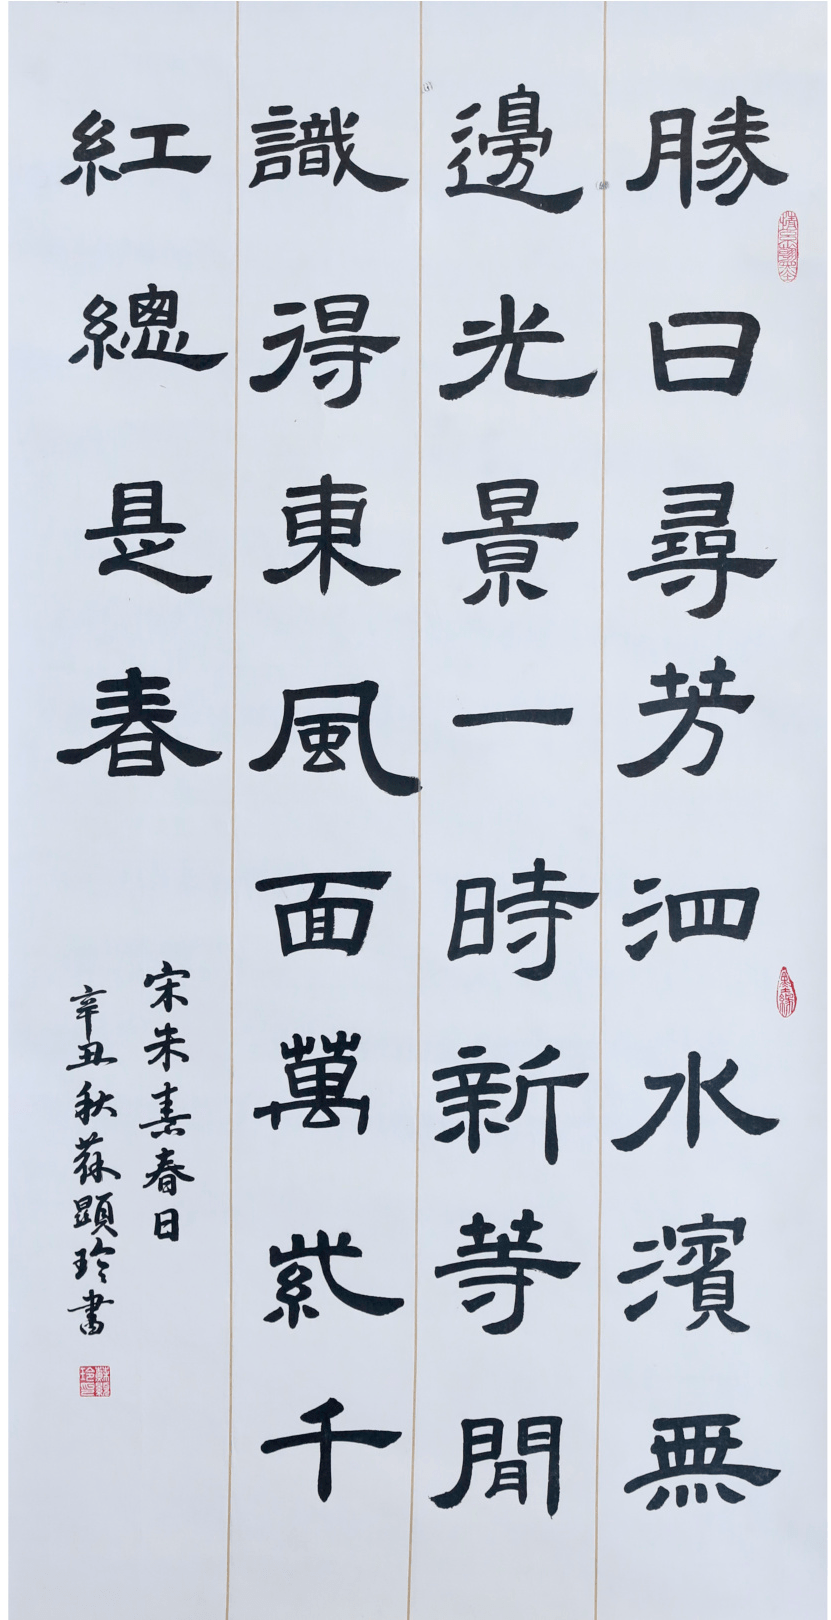 勝日尋芳泗水濱無
邊光景一時新等間
識得東風面萬紫千
紅總是春
宋朱熹春日
辛丑秋蘇顯玲書